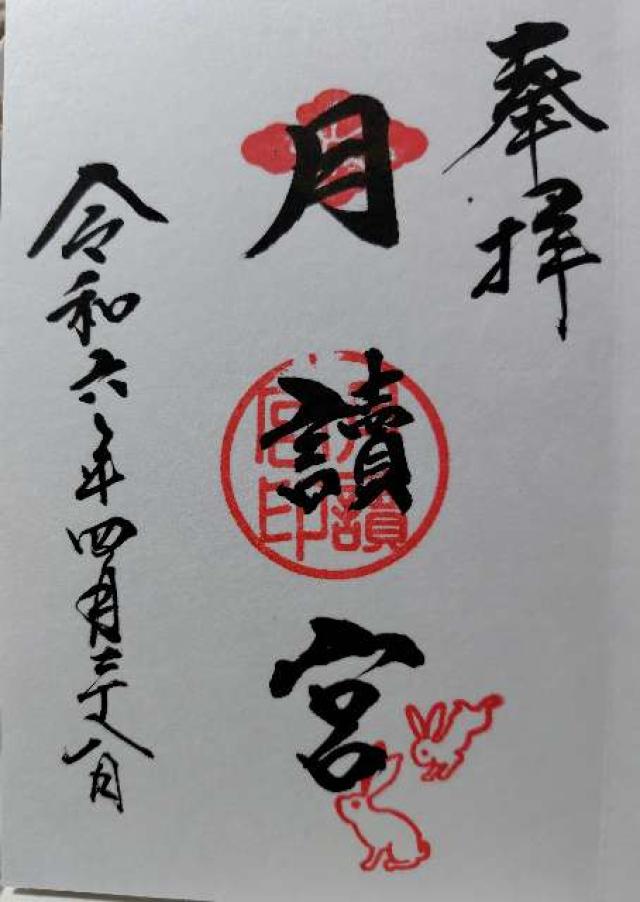 奉拝
月讀宮
月讀宮印
令和六年四月二十八日